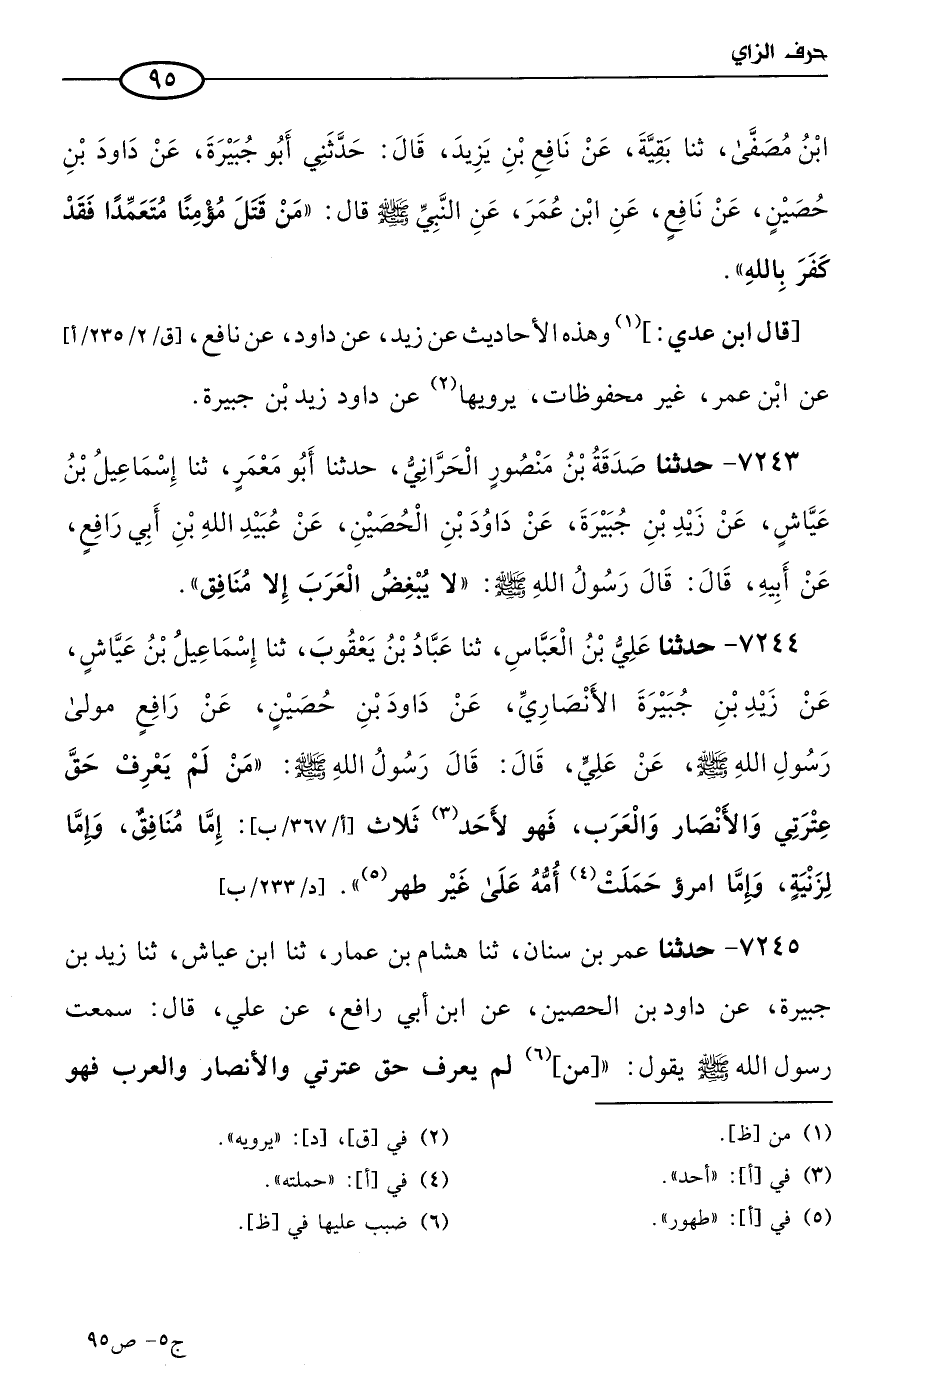 حرف الزاي
٩٥
ابْنُ مُصَفَّىٰ، ثنا بَقِيَّةَ، عَنْ نَافِعِ بْنِ يَزِيدَ، قَالَ: حَدَّثَنِي أَبُو جُبَيْرَةَ، عَنْ دَاودَ بْنِ
حُصَيْنٍ، عَنْ نَافِعٍ، عَنِ ابْنِ عُمَرَ، عَنِ النَّبِيِّ ﷺ قال: «مَنْ قَتَلَ مُؤْمِنًا مُتَعَمِّدًا فَقَدْ
كَفَرَ بِاللهِ».
[قال ابن عدي:](١) وهذه الأحاديث عن زيد، عن داود، عن نافع، [ق/٢/٢٣٥/أ]
عن ابْن عمر، غير محفوظات، يرويها(٢) عن داود زيد بْن جبيرة.
٧٢٤٣- حدثنا صَدَقَةُ بْنُ مَنْصُورٍ الْحَرَّانِيُّ، حدثنا أَبُو مَعْمَرٍ، ثنا إِسْمَاعِيلُ بْنُ
عَيَّاشٍ، عَنْ زَيْدِ بْنِ جُبَيْرَةَ، عَنْ دَاوُدَ بْنِ الْحُصَيْنِ، عَنْ عُبَيْدِ اللهِ بْنِ أَبِي رَافِعٍ،
عَنْ أَبِيهِ، قَالَ: قَالَ رَسُولُ اللهِ ﷺ: «لا يُبْغِضُ الْعَرَبَ إِلا مُنَافِق».
٧٢٤٤- حدثنا عَلِيُّ بْنُ الْعَبَّاسِ، ثنا عَبَّادُ بْنُ يَعْقُوبَ، ثنا إِسْمَاعِيلُ بْنُ عَيَّاشٍ،
عَنْ زَيْدِ بْنِ جُبَيْرَةَ الأَنْصَارِيِّ، عَنْ دَاودَ بْنِ حُصَيْنٍ، عَنْ رَافِعٍ مولىٰ
رَسُولِ اللهِ ﷺ، عَنْ عَلِيٍّ، قَالَ: قَالَ رَسُولُ اللهِ ﷺ: «مَنْ لَمْ يَعْرِفْ حَقَّ
عِتْرَتِي وَالأَنْصَار وَالْعَرَب، فَهو لأَحَد(٣) ثَلاث [أ/٣٦٧/ب]: إِمَّا مُنَافِقٌ، وَإِمَّا
لِزَنْيَةٍ، وَإِمَّا امرؤ حَمَلَتْ(٤) أُمُّهُ عَلَىٰ غَيْر طهر(٥)». [د/٢٣٣/ب]
٧٢٤٥- حدثنا عمر بن سنان، ثنا هشام بن عمار، ثنا ابن عياش، ثنا زيد بن
جبيرة، عن داود بن الحصين، عن ابن أبي رافع، عن علي، قال: سمعت
رسول الله ﷺ يقول: «[من](٦) لم يعرف حق عترتي والأنصار والعرب فهو
(١) من [ظ].
(٢) في [ق]، [د]: «يرويه».
(٣) في [أ]: «أحد».
(٤) في [أ]: «حملته».
(٥) في [أ]: «طهور».
(٦) ضبب عليها في [ظ].
ج٥- ص٩٥